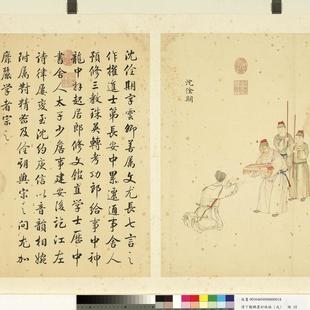 沈佺期字雲卿善屬文尤長七言之
作擢進士第長安中累遷通事舍人
預修三教珠英轉考功郎給事中神
龍中拜起居郎修文館直學士歷中
書舍人太子少詹事建安後訖江左
詩律屢變至沈約庾信以音韻相婉
附屬對精密及佺期與宋之問尤加
靡麗學者宗之
沈佺期